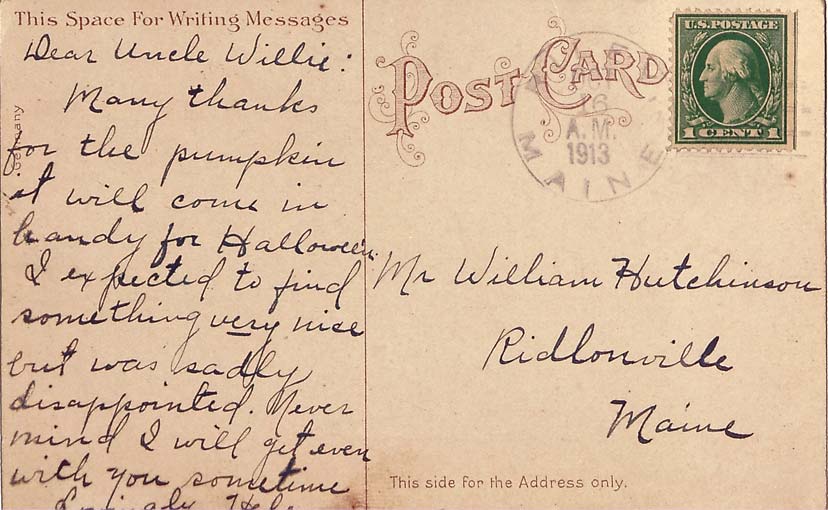 This Space For Writing Messages
Dear Uncle Willie:
Many thanks
for the pumpkin
it will come in
handy for Halloween.
I expected to find
something very nise
but was sadly
disappointed. Never
mind I will get even
with you sometime
Lovingly
Germany
POST CARD
A.M.
1913
MAINE
U.S. POSTAGE
1 CENT 1
Mr William Hutchinson
Ridlonville
Maine
This side for the Address only.